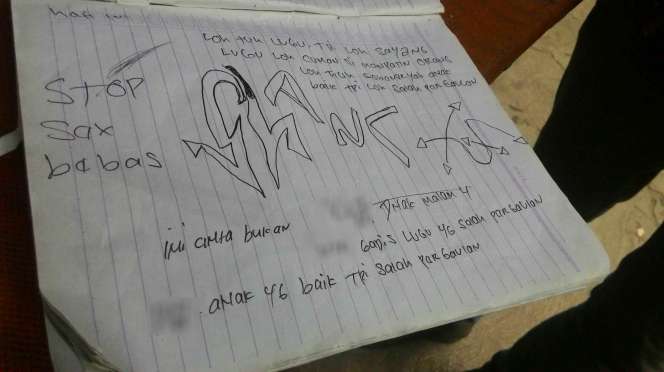 Hati
Loh tuh LUGU, TPi Loh SAYANG
LUGUU Loh CUMAN di MANFATIN ORANG
Loh TUSH SABANARYAH ANAK
baik TPi Loh SALAH PARGAULAN
STOP
Sax
babas
GHANK
ini ciNta bukan
ANAK MALAM 4
GADis LUGU YG SALAH PARGAULAN
ANAK YG baik TPi SALAH PARGAULAN